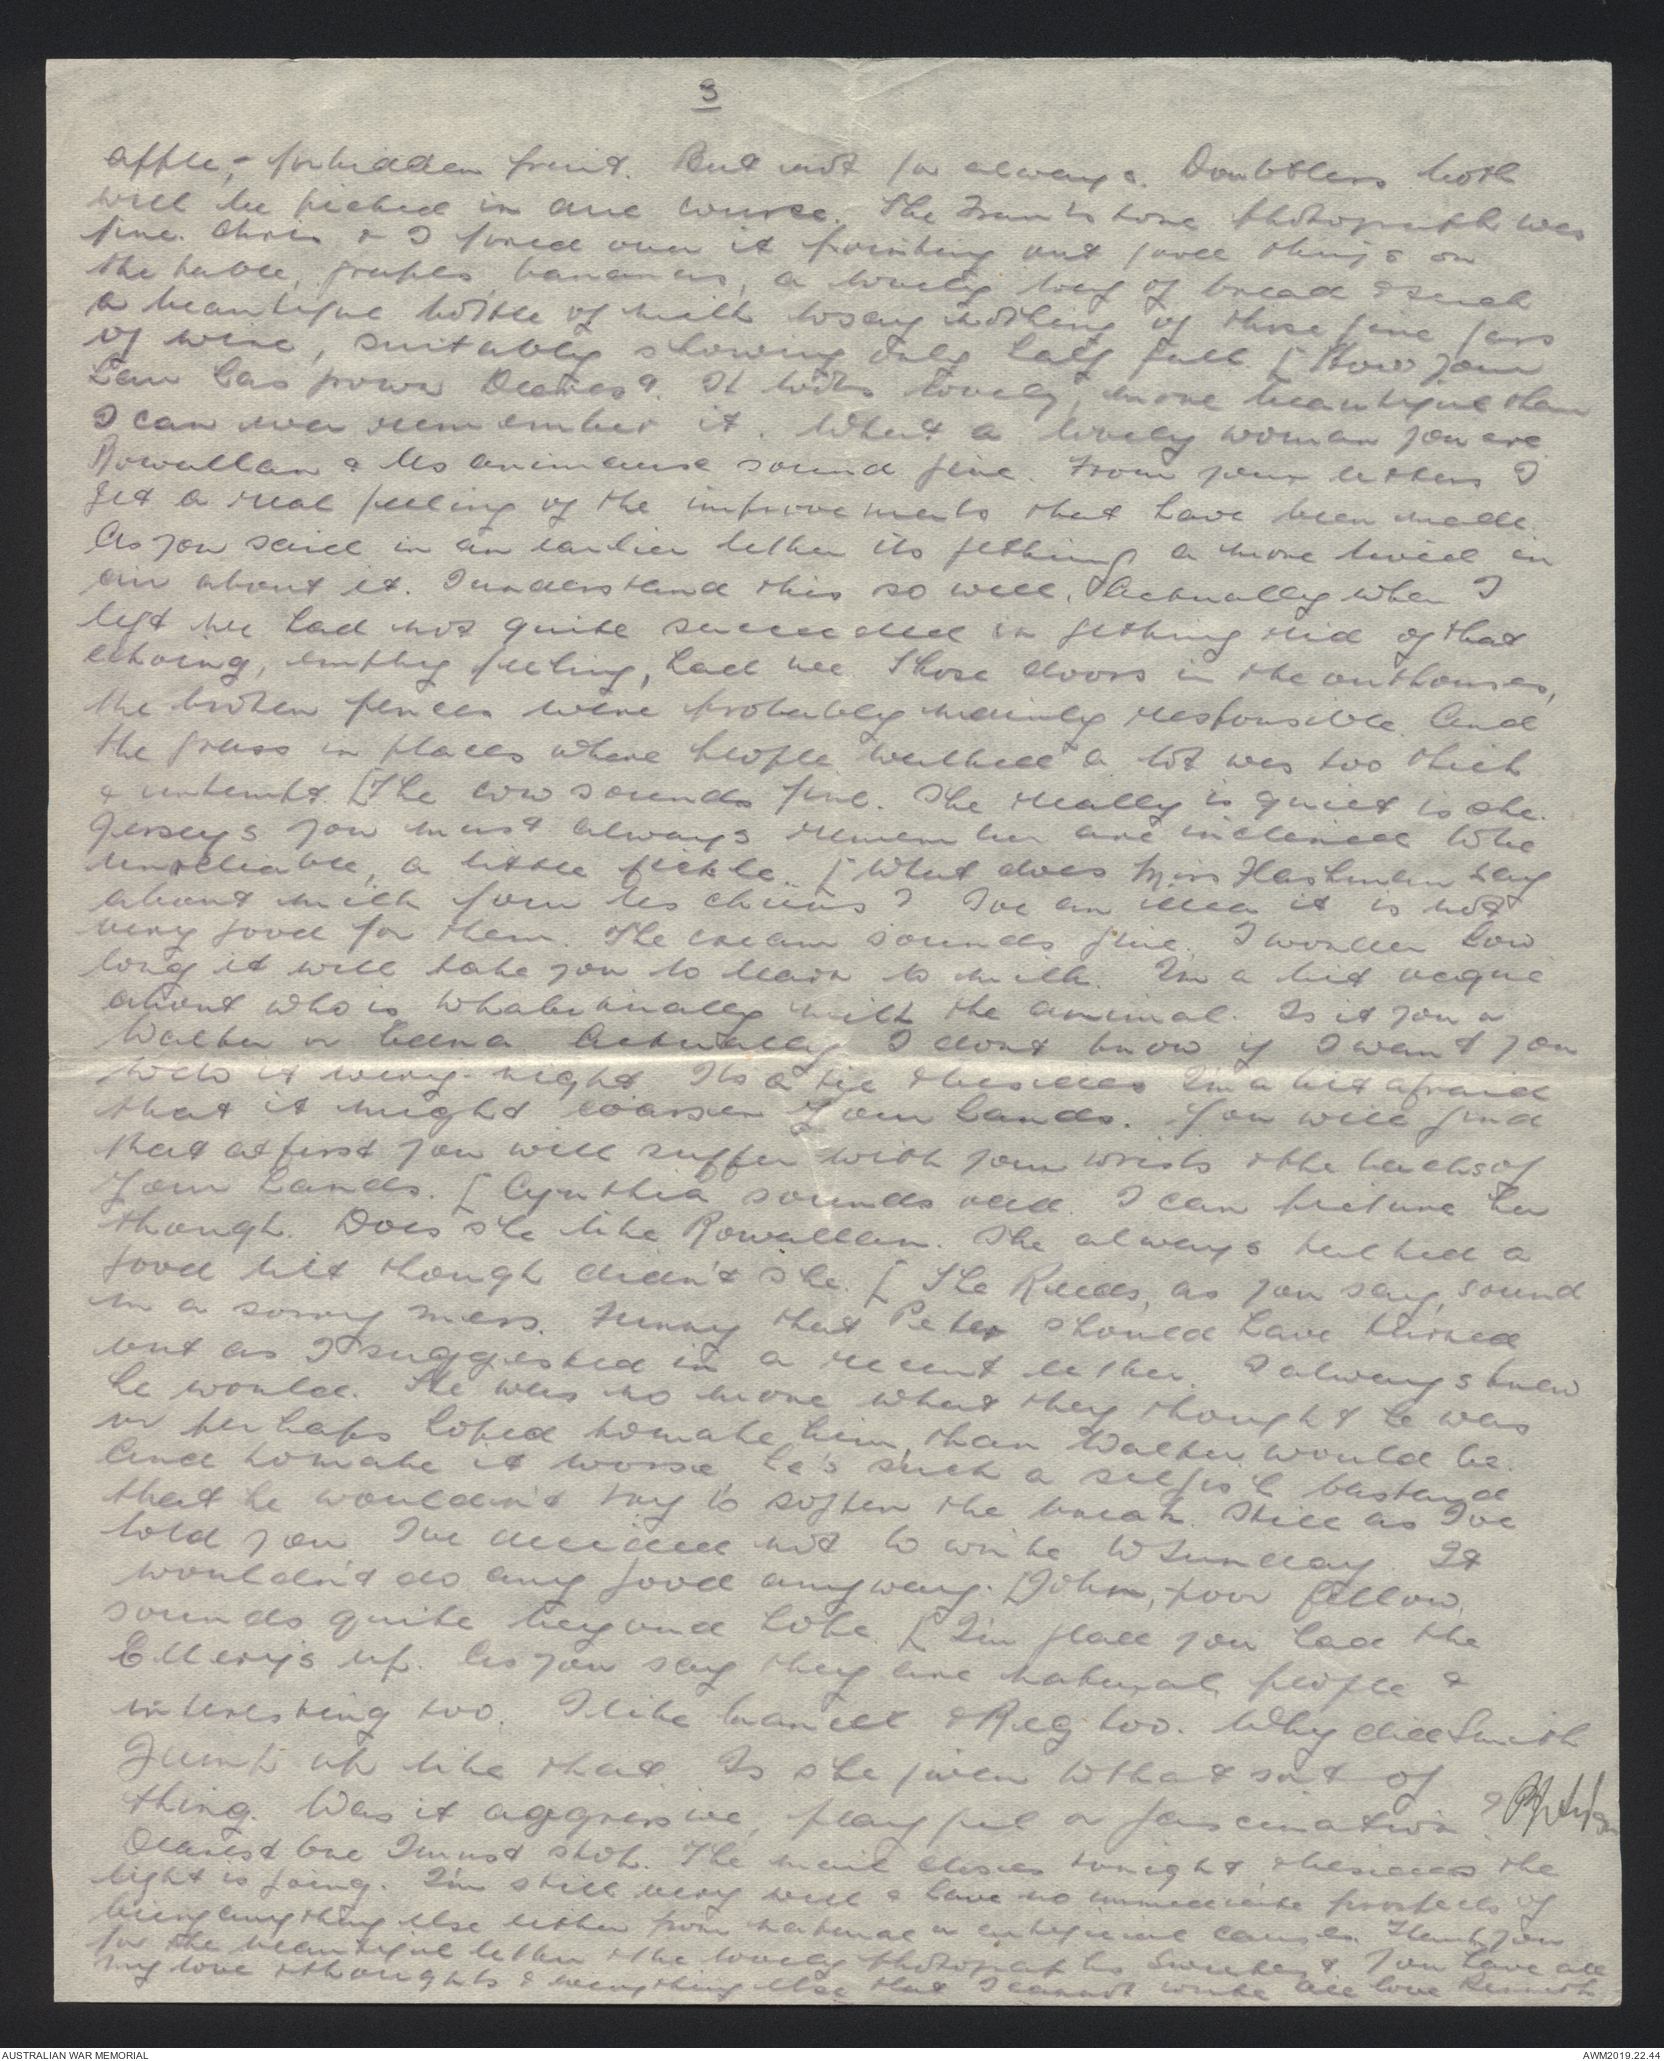 3
apple, - forbidden fruit. But not for always. Doubtless both
will be picked in due course. The Frankstone photograph was
fine. Chris & I pored over it pointing out good things on
the table, grapes, bananas, a lovely long of bread & such
a beautiful bottle of milk to say nothing of those fine jars
of wine, suitably showing only half full. [How your
hair has grown Dearest. It looks lovely, more beautiful than
I can ever remember it. What a lovely woman you are.
Rowallan & its animals sound fine. From your letters I
get a real feeling of the improvements that have been made.
As you said in an earlier letter its getting a more lived in
air about it. I understand this so well. Actually when I
left we had not quite succeeded in getting rid of that
echoing, empty feeling, had we. Those doors in the outhouses,
the broken fences were probably mainly responsible. And
the grass in places where people walked a lot was too thick
& unkempt. [The cow sounds fine. She really is quiet is she.
Jerseys you must always remember are inclined to be
unreliable, a little fickle. [What does Miss Hashman say
about milk for its chicks? I've an idea it is not
very good for them. The cream sounds fine. I wonder how
long it will take you to learn to milk. I'm a bit vague
about who is to habitually milk the animal. Is it you or
Walter or Edna. Actually I don't know if I want you
to do it every night. Its a tie & besides I'm a bit afraid
that it might coarsen your hands. You will find
that at first you will suffer with your wrists & the backs of
your hands. [Cynthia sounds odd. I can picture her
though. Does she like Rowallan. She always talked a
good bit though didn't she. [The Reeds, as you say, sound
in a sorry mess. Funny that Peter should have turned
out as I suggested in a recent letter. I always knew
he would. He was no more what they thought he was
or perhaps hoped to make him, than Walter would be.
And to make it worse he's such a selfish bastard
that he wouldn't try to soften the break. Still as I've
told you I've decided not to write to Sunday. It
wouldn't do any good anyway. [John, poor fellow,
sounds quite beyond hope. [I'm glad you had the
Ellerys up. As you say they are natural people &
interesting too. I like & Reg too. Why did Smith
Jump up like that. Is she given to that sort of
thing. Was it aggressive, playful or fascination?
Dearest one I must stop. The mail closes tonight & besides the
light is going. I'm still very well & have no immediate prospects of
being anything else either from natural or artificial causes. Thank you
for the beautiful letter & the lovely photographs Sweetest. You have all
my love & thoughts & everything else that I cannot write. All love Kenneth
AUSTRALIAN WAR MEMORIAL
AWM2019.22.44